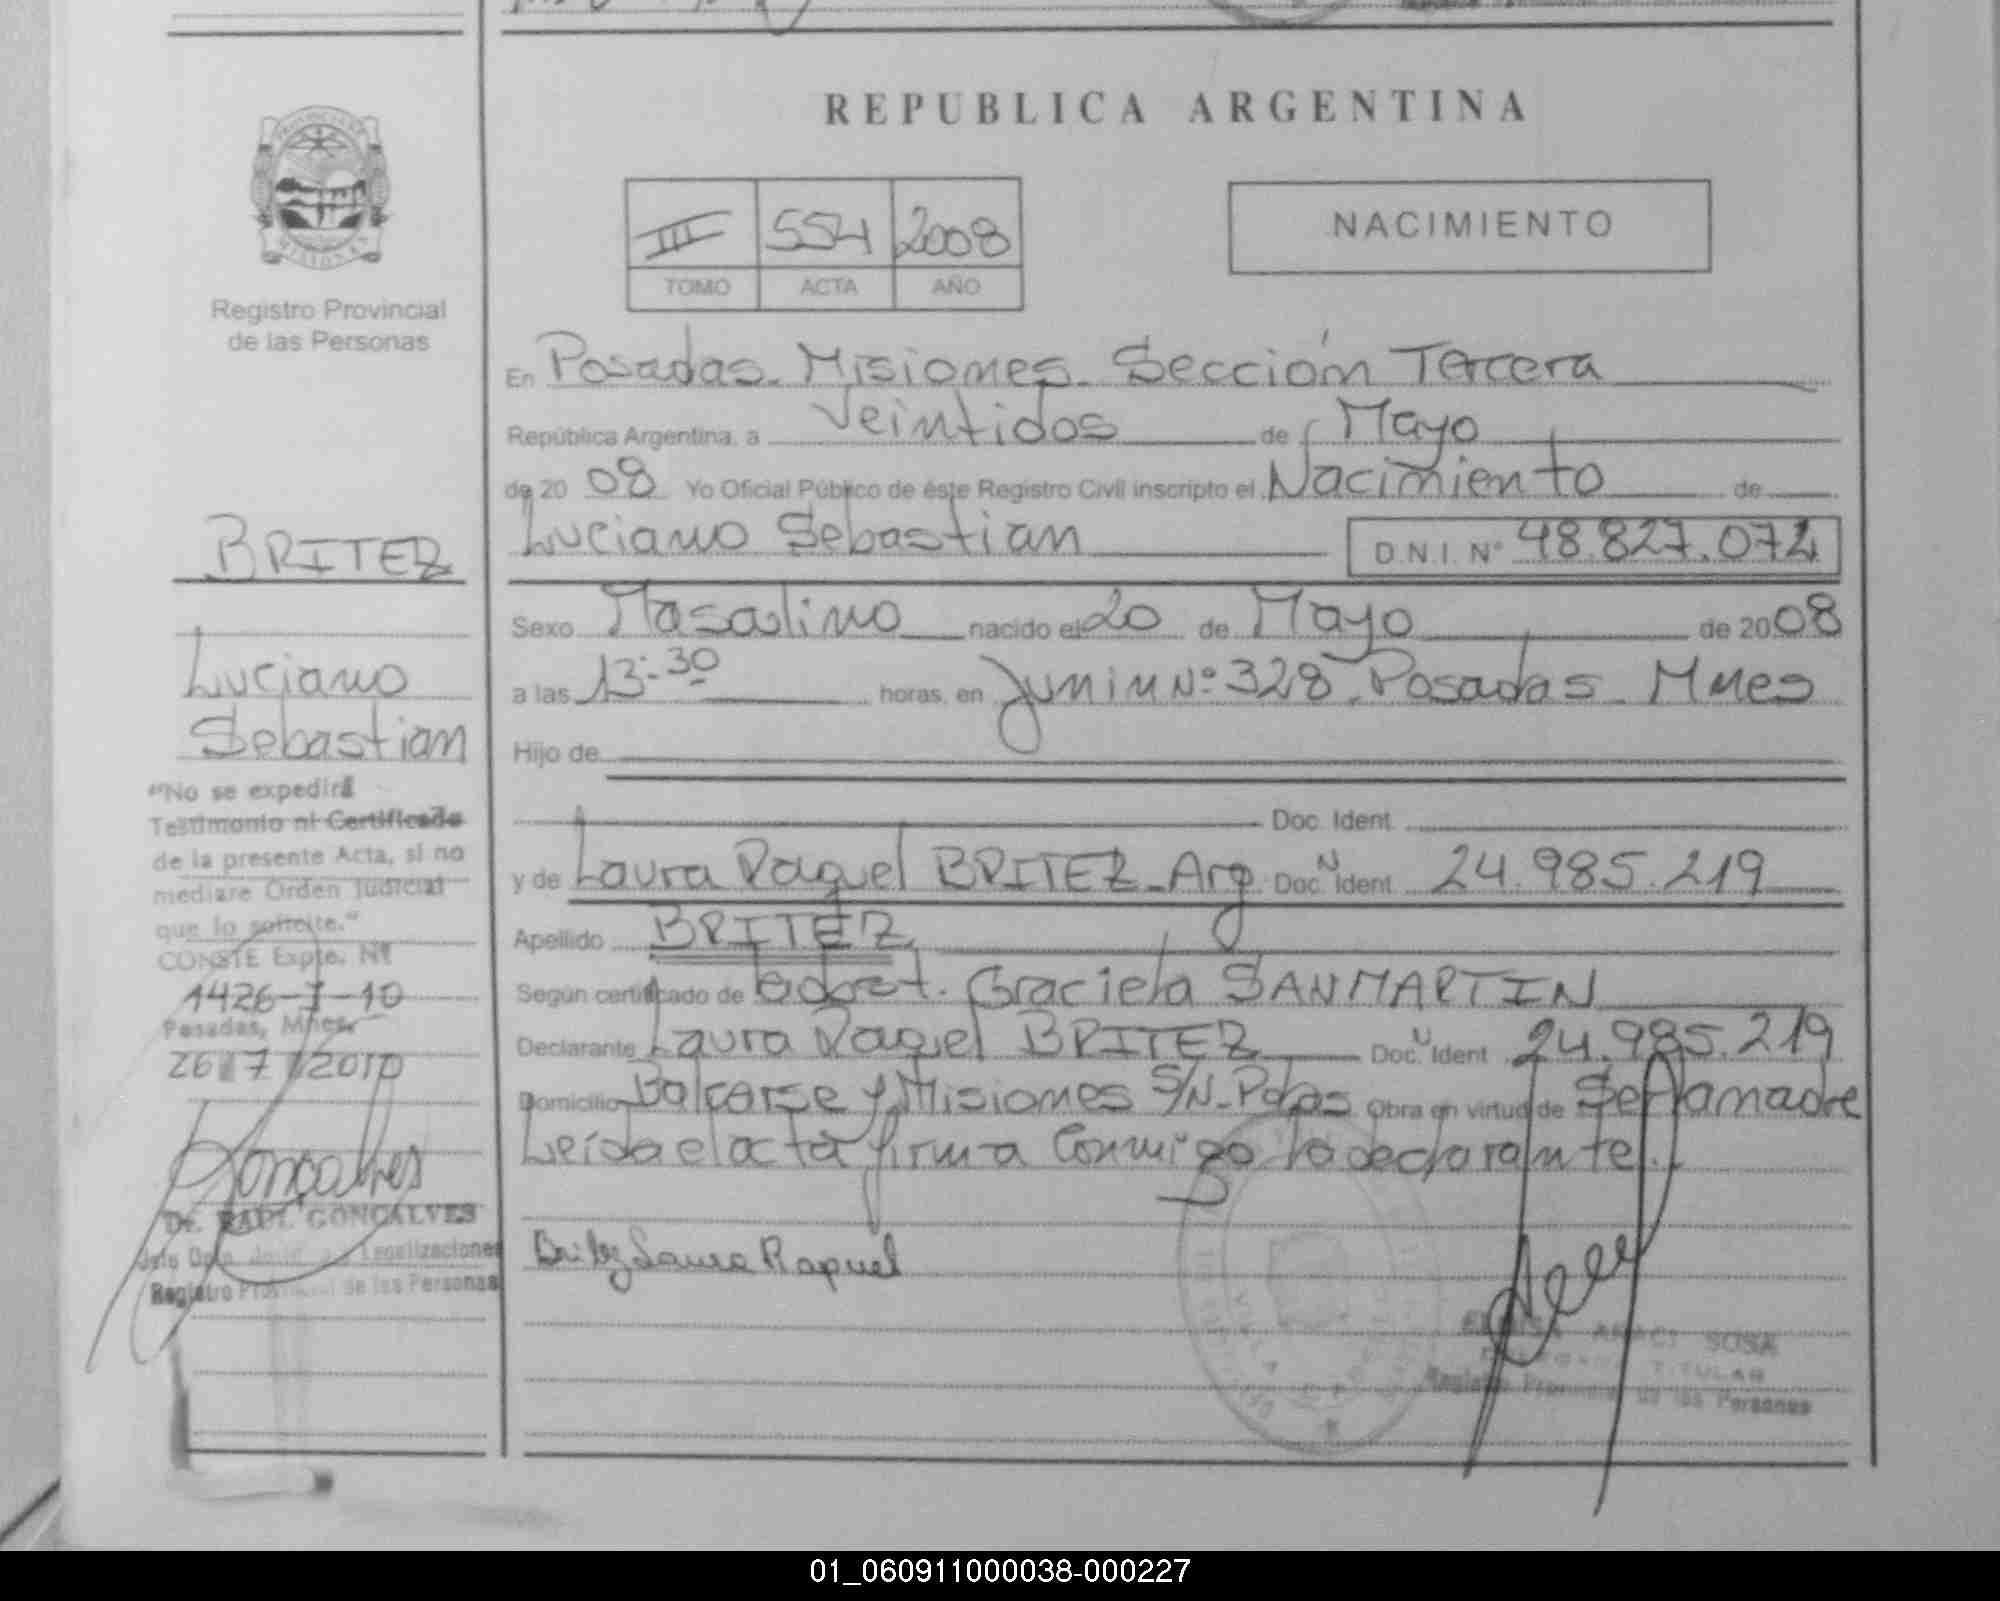 REPUBLICA ARGENTINA
III 554 2008
TOMO ACTA AÑO
NACIMIENTO
Registro Provincial
de las Personas
En Posadas - Misiones - Sección Tercera
República Argentina, a Veintidos de Mayo
de 20 08 Yo Oficial Público de éste Registro Civil inscripto el Nacimiento de
Luciano Sebastian D.N.I. Nº 48.827.074
Sexo Masculino nacido el 20 de Mayo de 20 08
a las 13:30 horas, en Junin Nº 328 - Posadas - Mnes
Hijo de
Doc. Ident.
y de Laura Raquel BRITEZ - Arg. Doc. N Ident. 24.985.219
Apellido BRITEZ
Según certificado de Obst. Graciela SANMARTIN
Declarante Laura Raquel BRITEZ Doc. N Ident. 24.985.219
Domicilio Balcarse y Misiones S/N - Pdas Obra en virtud de Ser la madre
Leída el acta firma conmigo la declarante.
Britez Laura Raquel
SOSA
TITULAR
Registro Provincial de las Personas
BRITEZ
Luciano
Sebastian
"No se expedirá
Testimonio ni Certificado
de la presente Acta, si no
mediare Orden Judicial
que lo solicite."
CONSTE Expte. Nº
1426-J-10
Posadas, Mnes,
26/7/2010
Goncalves
Dr. RAUL GONCALVES
Jefe Dpto. Legalizaciones
Registro Provincial de las Personas
01_060911000038-000227